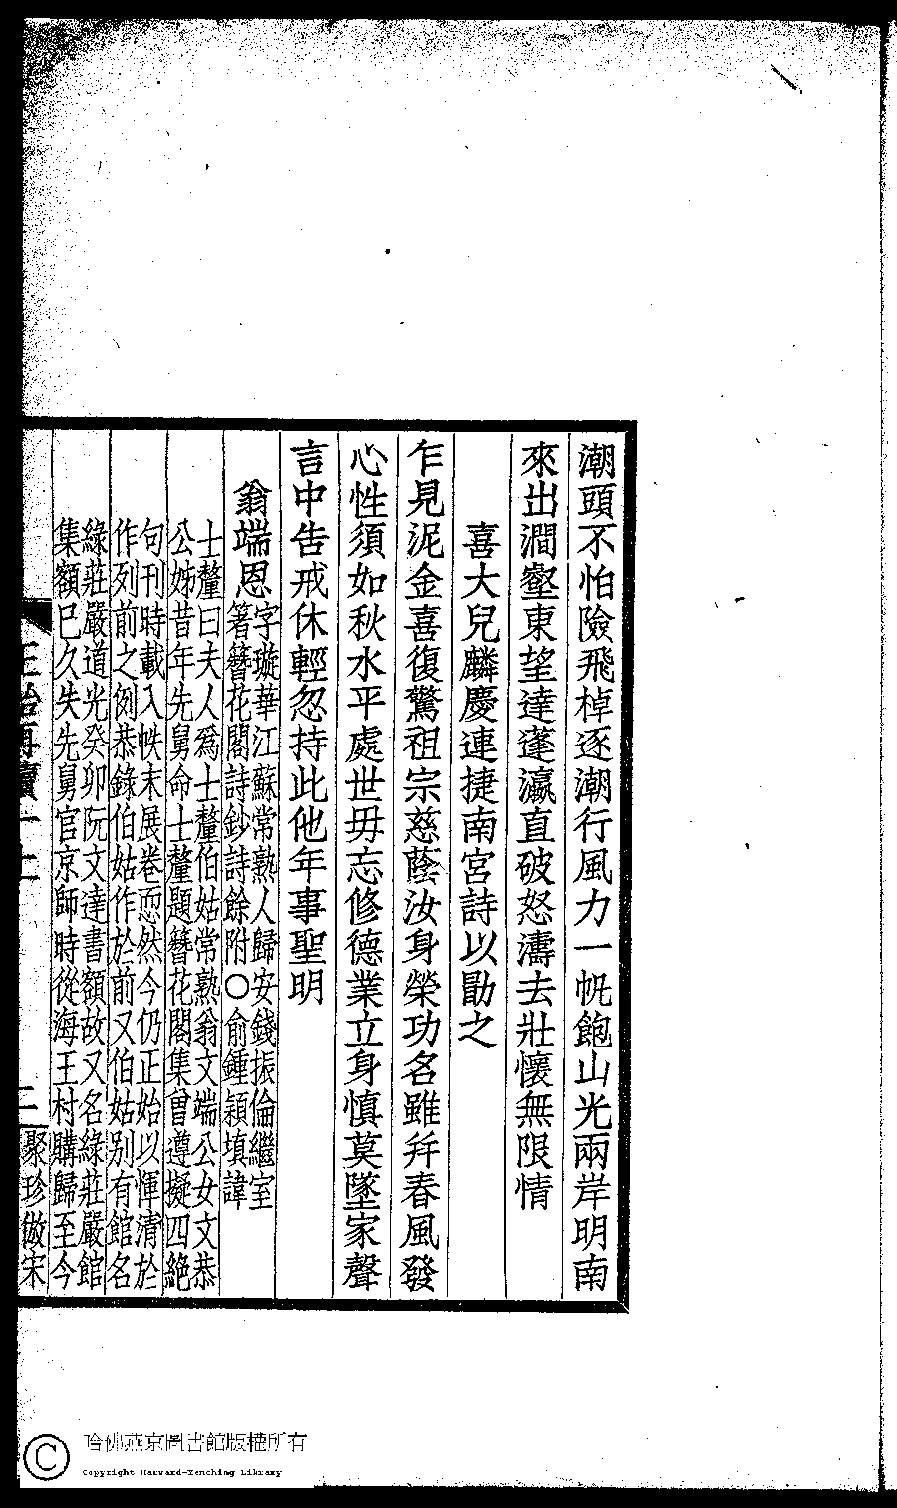 潮頭不怕險飛棹逐潮行風力一帆飽山光兩岸明南
來出澗壑東望達蓬瀛直破怒濤去壯懷無限情
喜大兒麟慶連捷南宮詩以勖之
乍見泥金喜復驚祖宗慈蔭汝身榮功名雖幷春風發
心性須如秋水平處世毋忘修德業立身慎莫墜家聲
言中告戒休輕忽持此他年事聖明
翁端恩
字璇華江蘇常熟人歸安錢振倫繼室
箸簪花閣詩鈔詩餘附○俞鍾穎填諱
士釐曰夫人爲士釐伯姑常熟翁文端公女文恭
公姊昔年先舅命士釐題簪花閣集曾遵擬四絶
句刊時載入帙末展卷恧然今仍正始以惲清於
作列前之例恭錄伯姑作於前又伯姑别有館名
綠莊嚴道光癸卯阮文達書額故又名綠莊嚴館
集額已久失先舅官京師時從海王村購歸至今
正始再續
二
聚珍倣宋
哈佛燕京圖書館版權所有
Copyright Harvard-Yenching Library